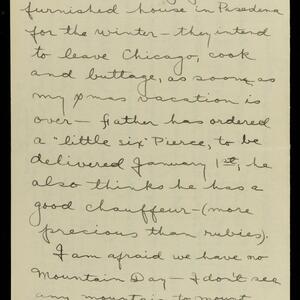 furnished house in Pasadena
for the winter - they intend
to leave Chicago, cook
and buttage, as soon as
my Xmas vacation is
over - Father has ordered
a "little six" Pierce, to be
delivered January 1st, he
also thinks he has a
good chauffeur - (more
precious than rubies).
I am afraid we have no
Mountain Day - I don't see
any mountain to mount